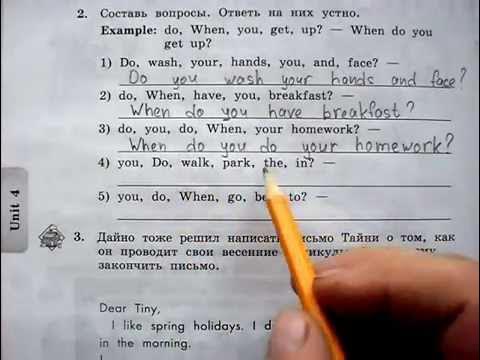 2. Составь вопросы. Ответь на них устно.
Example: do, When, you, get, up? — When do you
get up?
1) Do, wash, your, hands, you, and, face? —
Do you wash your hands and face?
2) do, When, have, you, breakfast? —
When do you have breakfast?
3) do, you, do, When, your homework? —
When do you do your homework?
4) you, Do, walk, park, the, in? —
5) you, do, When, go, to? —
Unit 4
3. Дайно тоже решил написать письмо Тайни о том, как
он проводит свои весенние
закончить письмо.
Dear Tiny,
I like spring holidays. I
in the morning.